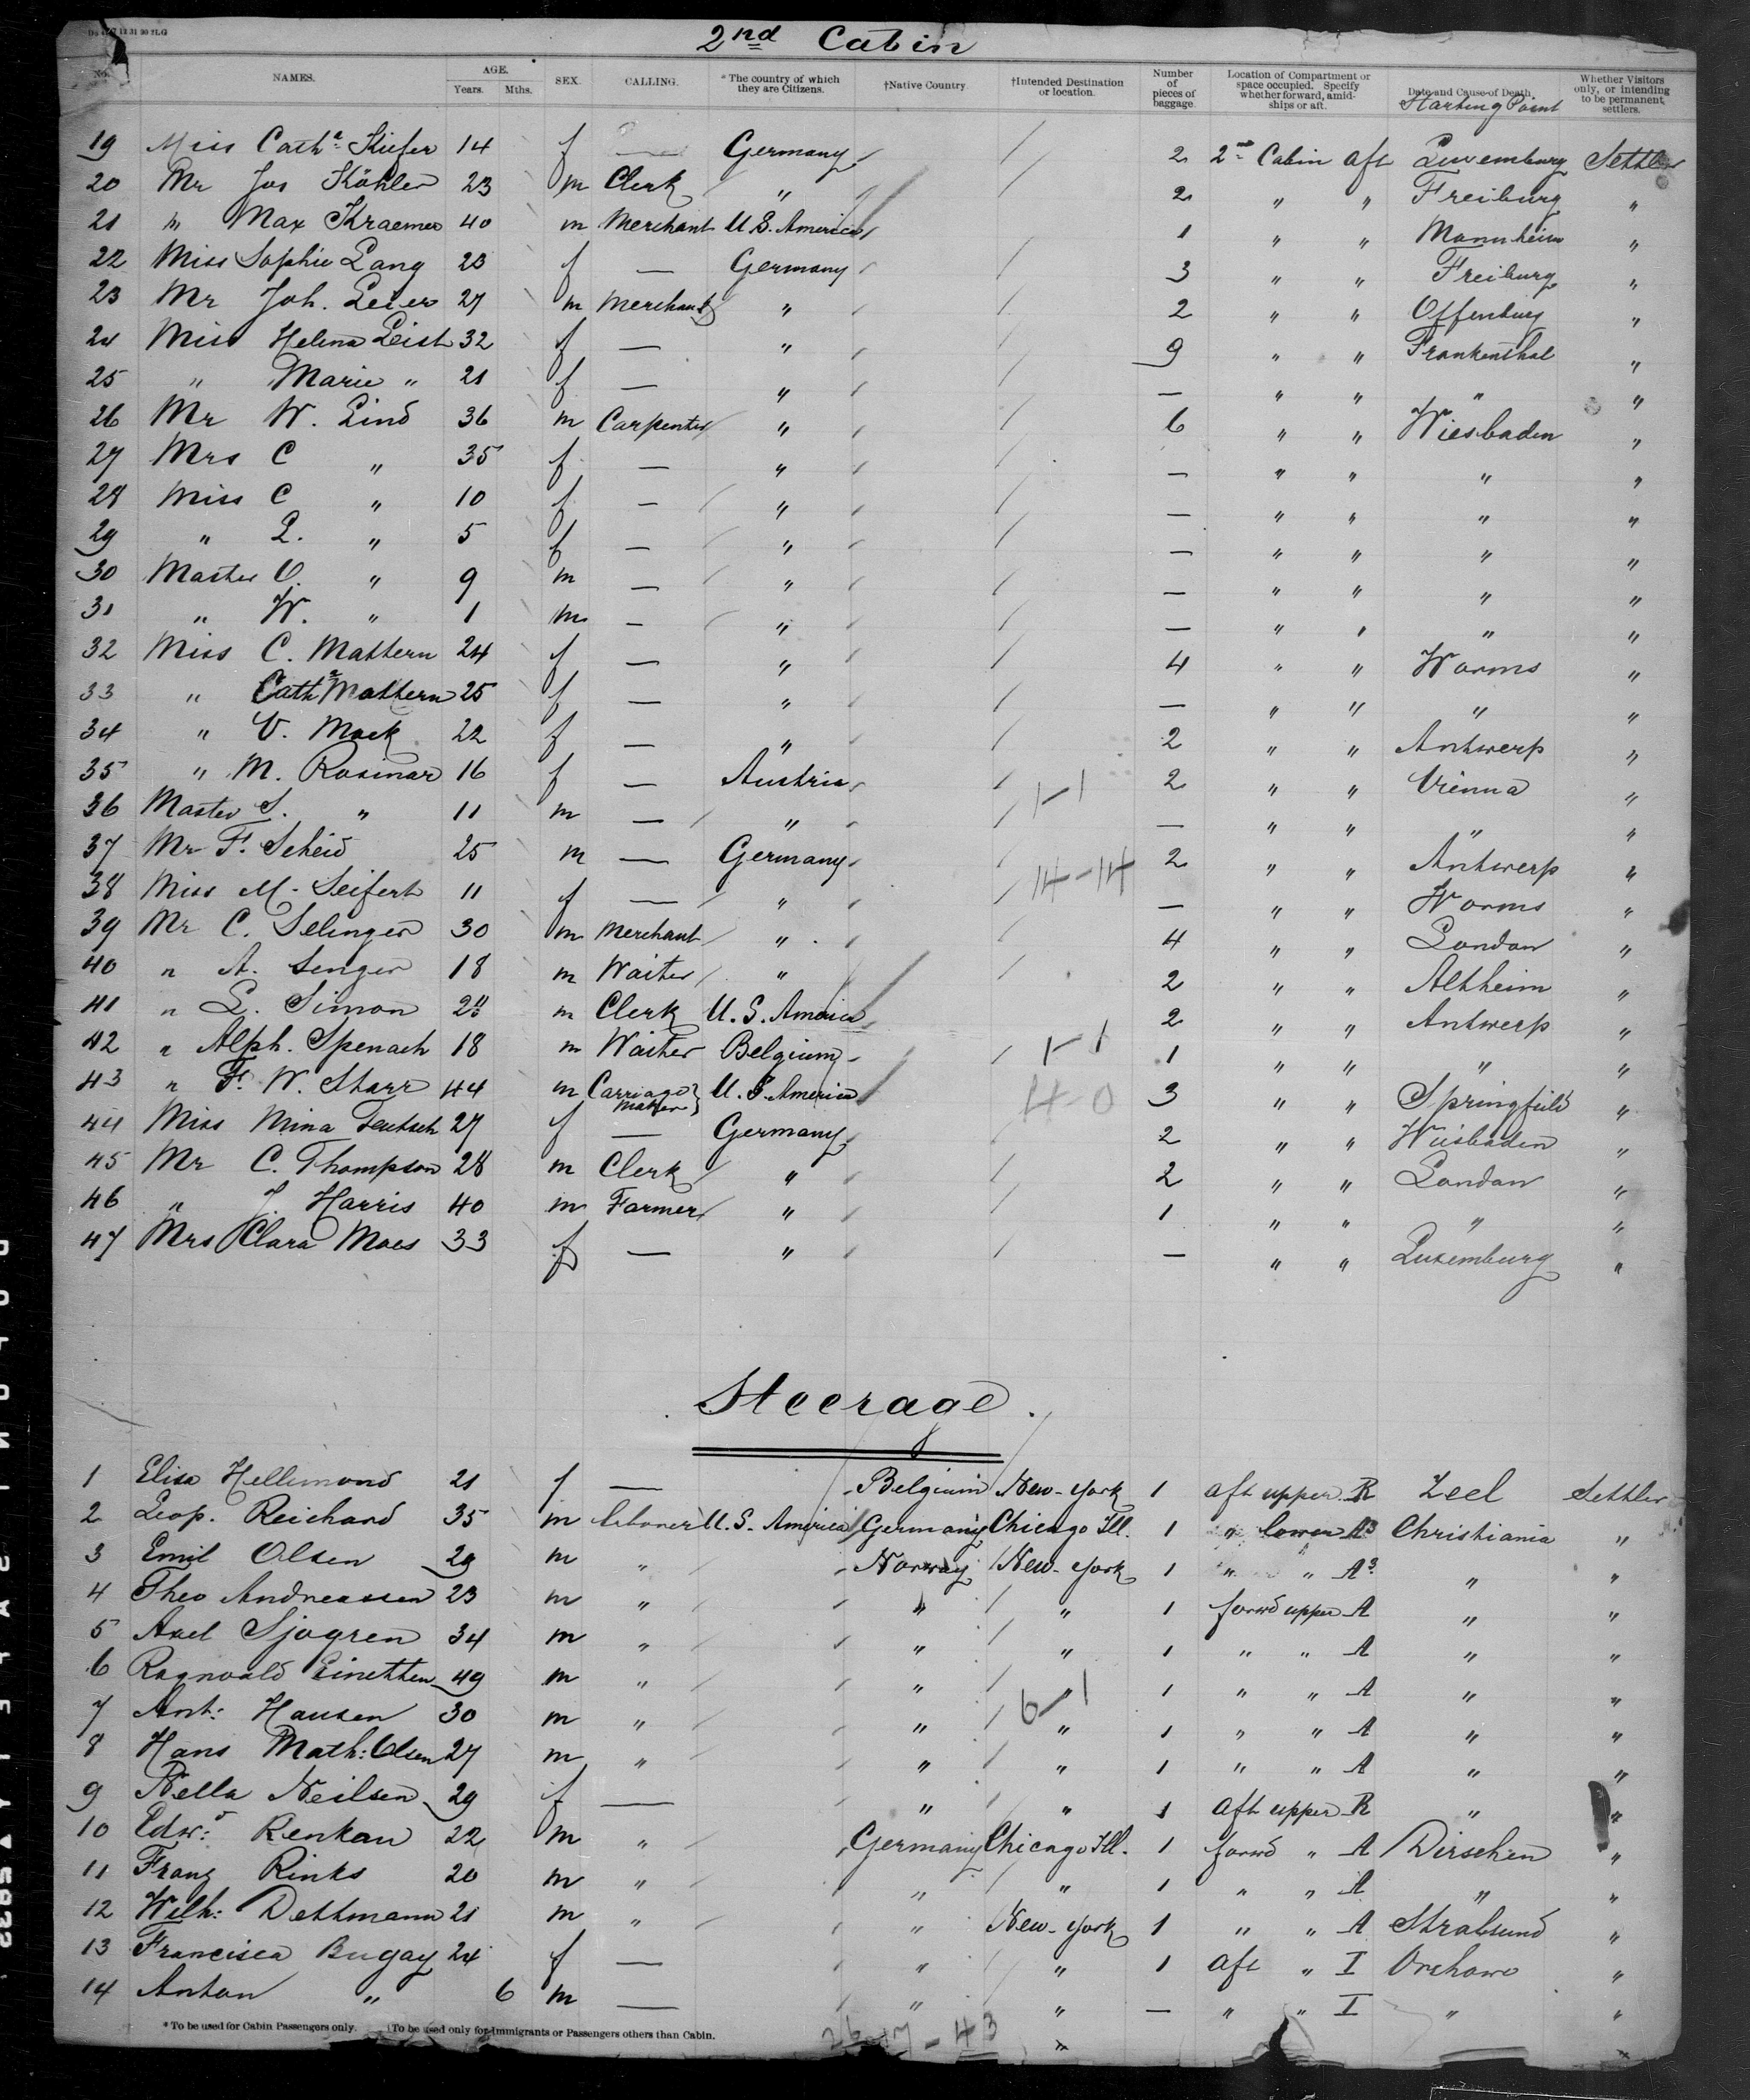 2nd Cabin
No. NAMES. AGE. Years. Mths. SEX. CALLING. *The country of which they are Citizens. †Native Country. †Intended Destination or location. Number of pieces of baggage. Location of Compartment or space occupied. Specify whether forward, amidships or aft. Date and Cause of Death. Starting Point Whether Visitors only, or intending to be permanent settlers.
19 Miss Cath. Kiefer 14 f — Germany 2 2nd Cabin aft Luxemburg Settler
20 Mr Jos Köhler 23 m Clerk " 2 " " Freiburg "
21 " Max Kraemer 40 m Merchant U.S. America 1 " " Mannheim "
22 Miss Sophie Lang 23 f — Germany 3 " " Freiburg "
23 Mr Joh. Leier 27 m Merchant " 2 " " Offenburg "
24 Miss Helena Leist 32 f — " 9 " " Frankenthal "
25 " Marie " 21 f — " — " " " "
26 Mr W. Lind 36 m Carpenter " 6 " " Wiesbaden "
27 Mrs C " 35 f — " — " " " "
28 Miss C " 10 f — " — " " " "
29 " L. " 5 f — " — " " " "
30 Master O. " 9 m — " — " " " "
31 " W. " 1 m — " — " " " "
32 Miss C. Mattern 24 f — " 4 " " Worms "
33 " Cath Mattern 25 f — " — " " " "
34 " V. Mack 22 f — " 2 " " Antwerp "
35 " M. Rosinar 16 f — Austria 2 " " Vienna "
36 Master S. " 11 m — " 1-1 — " " " "
37 Mr F. Scheid 25 m — Germany 2 " " Antwerp "
38 Miss M. Seifert 11 f — " 14-14 — " " Worms "
39 Mr C. Selinger 30 m Merchant " 4 " " London "
40 " A. Senger 18 m Waiter " 2 " " Altheim "
41 " L. Simon m Clerk U.S. America 2 " " Antwerp "
42 " Alph. Spenach 18 m Waiter Belgium 1-1 1 " " " "
43 " F. W. Starr 44 m Carriage maker U.S. America 4-0 3 " " Springfield "
44 Miss Mina Teutsch 27 f — Germany 2 " " Wiesbaden "
45 Mr C. Thompson 28 m Clerk " 2 " " London "
46 " J. Harris 40 m Farmer " 1 " " " "
47 Mrs Clara Moes 33 f — " — " " Luxemburg "
Steerage.
1 Elisa Hellemond 21 f — Belgium New-York 1 aft upper R Zeel Settler
2 Leop. Reichard 35 m laborer U.S. America Germany Chicago Ill. 1 " lower A3 Christiania "
3 Emil Olsen 29 m " Norway New-York 1 " " A3 " "
4 Theo Andreassen 23 m " " " 1 forwd upper A " "
5 Axel Sjogren 34 m " " " 1 " " A " "
6 Ragnvald Einetten 49 m " " " 1 " " A " "
7 Ant: Hansen 30 m " " 6-1 " 1 " " A " "
8 Hans Math: Olsen 27 m " " " 1 " " A " "
9 Nella Neilsen 29 f — " " 1 aft upper R " "
10 Edwd: Renkau 22 m " Germany Chicago Ill. 1 forwd " A Dirschen "
11 Franz Rinks 20 m " " " 1 " " A " "
12 Wilh: Dettmann 21 m " " New-York 1 " " A Stralsund "
13 Francisca Bugay 24 f — " " 1 aft " I Orchowo "
14 Anton " 6 m — " " — " " I " "
*To be used for Cabin Passengers only. †To be used only for Immigrants or Passengers others than Cabin.
26-17-43